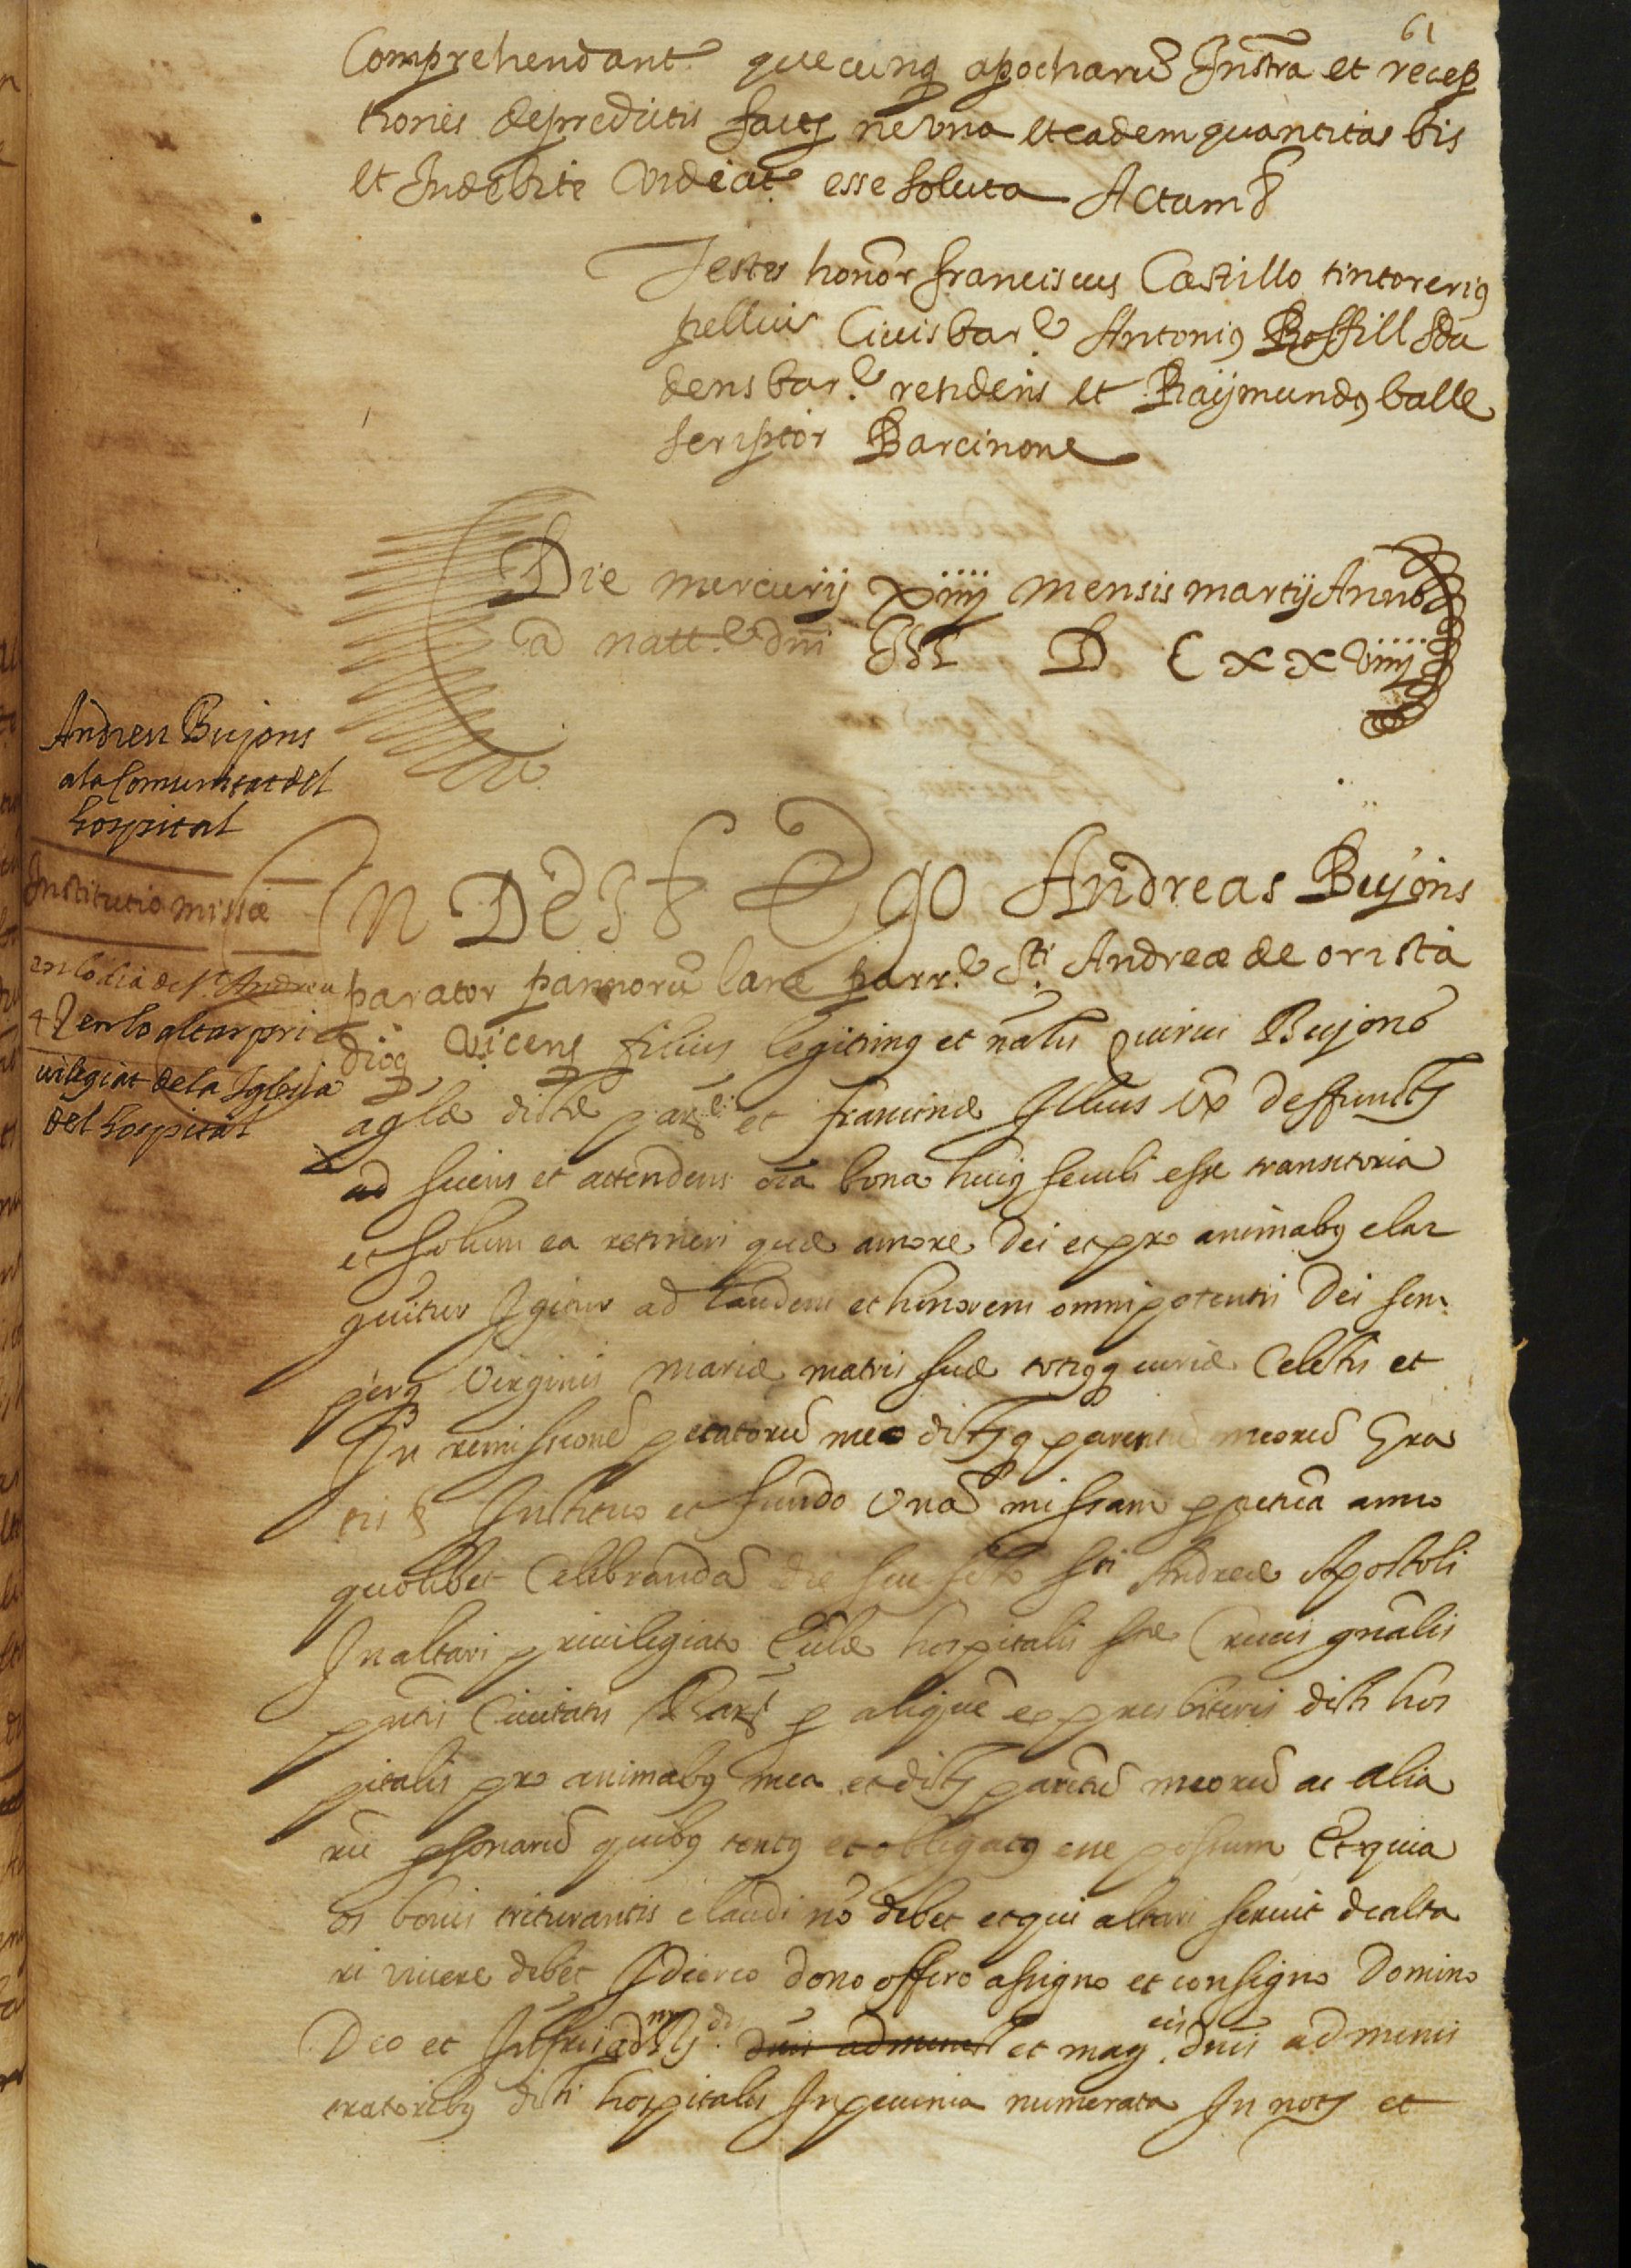 61
Comprehendant quecunq apocharũ Instra et recep
tiones de predictis factꝭ ne vna et eadem quantitas bis
et Indebite videat esse soluta Actum &
Testes honor franciscus Castillo tintorerius
pellium Ciuis bar.e Antonius Boffill Stu
dens bar.e residens et Raymundus balle
scriptor Barcinone
Die mercurij xiiij mensis martij Anno
a natt.e dni M D C x x viiij
Andreu Bujons
a la Comunitat del
hospital
Institutio missæ
en lo dia de St Andreu
y en lo altar pri
uilegiat de la Iglesia
del hospital
In Dei & Ego Andreas Bujons
parator pannorũ lane parr.e Sti Andreæ de orista
dioc vicens filius legitimus et natu Quirici Bujons
agle dictæ par et francinæ Illius vx deffunctꝭ
ad sciens et attendens oia bona huius seculi esse transitoria
et solum ea retineri quæ amore Dei et pro animabus elar
guitur Igitur ad laudem et honorem omnipotentis Dei sem
perq Virginis mariæ matris suæ totiusq curiæ Celestis et
In remissionẽ peccatorũ meo dictꝭq parentũ meorũ Gra
tis & Instituo et fundo vnã missam ppetuã anno
quolibet Celebrandã die seu festo Sti Andreæ Apostoli
In altari priuilegiato Eccle hospitalis Stæ Crucis gnalis
pntis Ciuitatis Bar p aliquẽ ex presbiteris dicti hos
pitalis pro animabus mea et dictꝭ parentũ meorũ ac alia
rũ psonarũ quibus tentus et obligatus esse possum Et quia
os bouis triturantis claudi nõ debet et qui altari seruit de alta
ri viuere debet Idcirco dono offero assigno et consigno Domino
Deo et dnis adminis et mag.cis dnis adminis
tratoribus dicti hospitalis In pecunia numerata In notꝭ et